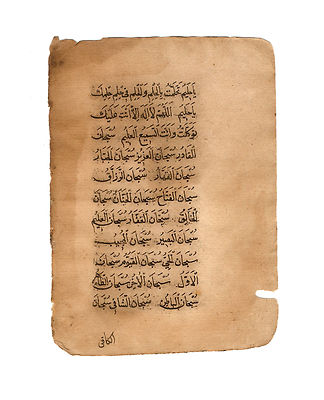 يا حليم تحلمت بالحلم والحلم في حلم حلمك
يا حليم اللهم لا اله الا انت عليك
توكلت وانت السميع العليم سبحان
القادر سبحان العزيز سبحان الجبار
سبحان القهار سبحان الرزاق
سبحان الفتاح سبحان الحنان سبحان
الخالق سبحان الغفار سبحان العليم
سبحان البصير سبحان المجيب
سبحان الحي سبحان القيوم سبحان
الاول سبحان الاخر سبحان الظاهر
سبحان الباطن سبحان الشافي سبحان
الكافي